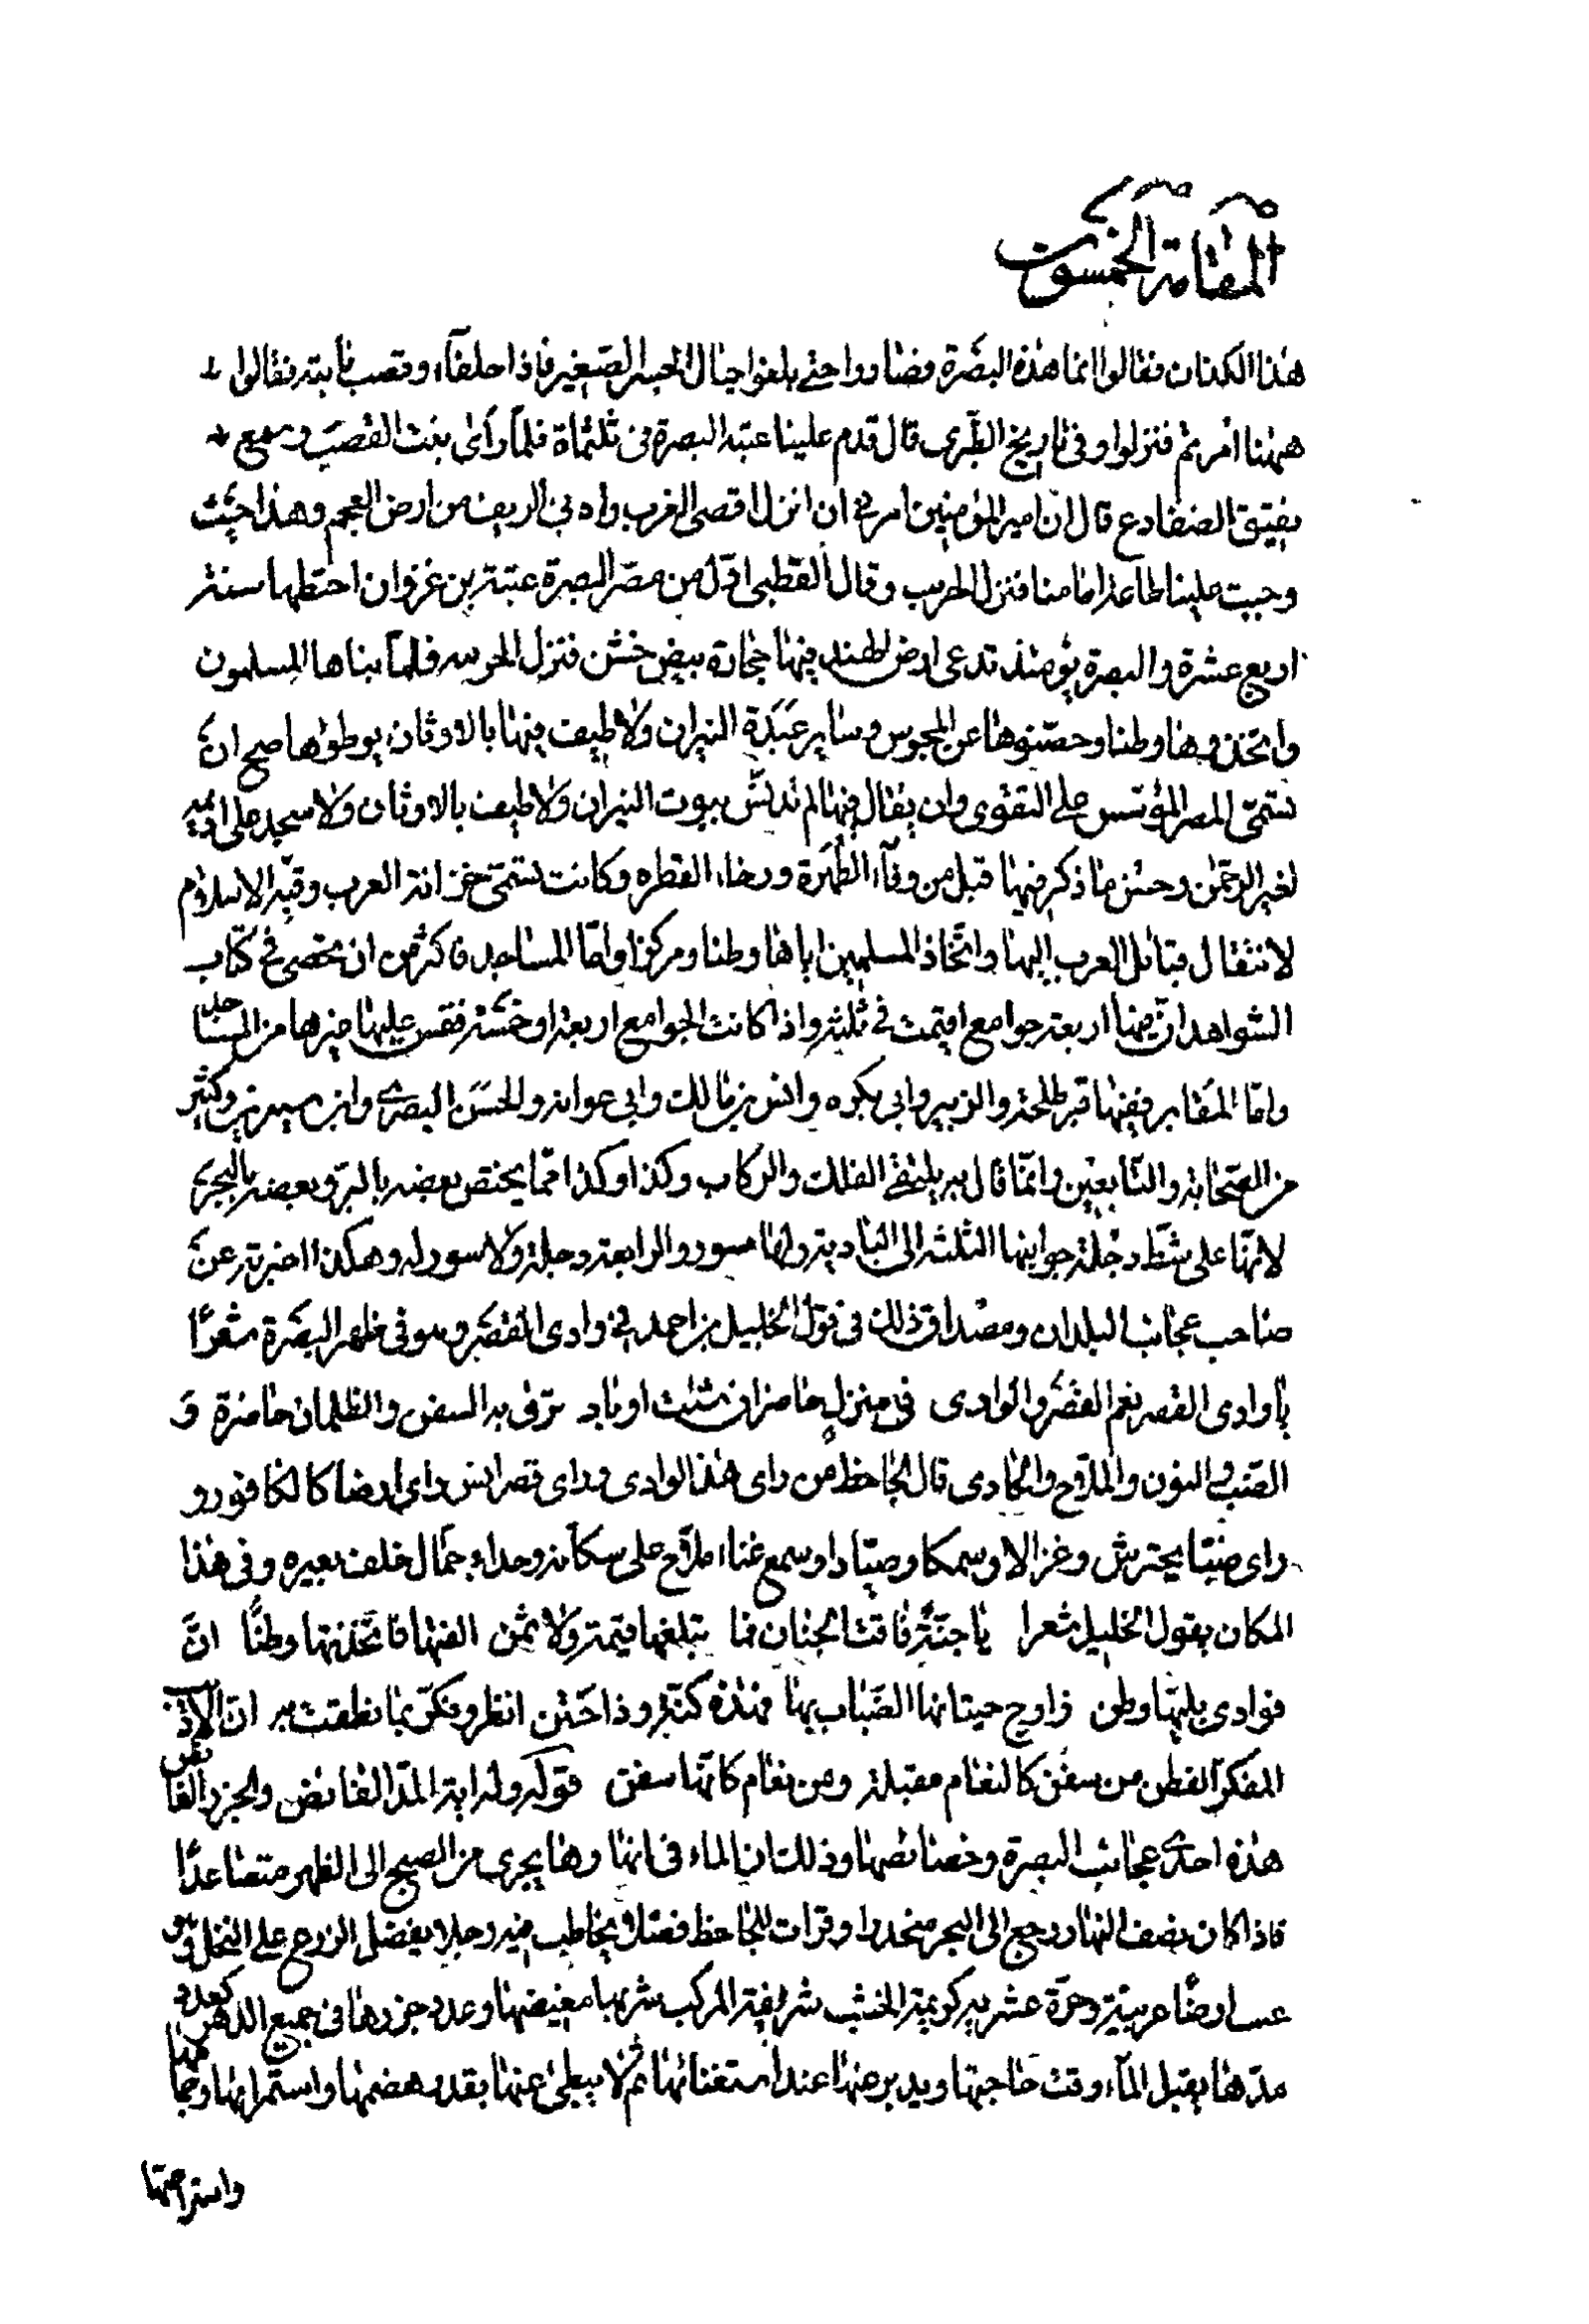 المقامة الخمسون
هذا الكذان فقالوا انما هذه البصرة فضاروا حتى بلغوا حيال الجسر الصغير فاذا حلفاء وقصب نابتة فقالوا
ههنا امرتم فنزلوا وفى تاريخ الطبرى قال قدم علينا عتبة البصرة فى ثلثماة فلما راى بنت القصب وسمع
نقيق الضفادع قال ان امير المؤمنين امرنى ان انزل اقصى العرب وادنى الريف من ارض العجم وهذا حيث
وجبت علينا طاعة امامنا فنزل الخريب وقال القطبى اول من مصر البصرة عتبة بن غزوان احتطها سنة
اربع عشرة والبصرة يومئذ تدعى ارض الهند فيها حجارة بيض خشن فنزل الخريبه فلما بناها المسلمون
واتخذوها وطنا وحصنوها عن المجوس وساير عبدة النيران ولا طيف فيها بالاوثان يوطوها صح ان
تسمى المصر المؤسس على التقوى وان يقال فيها لم تدنس ببيوت النيران ولا طيف بالاوثان ولا سجد على اديمه
لغير الرحمن وحسن ما ذكر فيها قبل من وفاء الظهرة ورخاء القطره وكانت تسمى خزانة العرب وقبة الاسلام
لانتقال قبائل العرب اليها واتخاذ المسلمين اياها وطنا ومركزا واما المساجد فاكثر من ان تحصى فى كتاب
الشواهد ان بهنا اربعة جوامع اقيمت فى ثلثه واذا كانت الجوامع اربعة او خمسة فقس عليها غيرها من المساجد
واما المقابر ففيها قبر طلحة والزبير وابى بكره وانس بن مالك وابى عوانه والحسن البصرى وابن سيرين وكثير
من الصحابة والتابعين وانما قال به يلتقى الفلك والركاب وكذا وكذا مما يختص بعضه بالبر وبعضه بالبحر
لانها على شط دجلة جوانبها الثلثة الى البادية ولها سور والرابعة دجلة ولا سور له وهكذا اخبرته عن
صاحب عجائب البلدان ومصداق ذلك فى قول الخليل بن احمد فى وادى القصر وهو فى ظهر البصرة شعرا
يا وادى القصر نعم القصر والوادى فى منزل حاضر ان شئت او باد ترقى به السفن والظلمان حاضرة و
الضب والنون والملاح والحادى قال الجاحظ من راى هذا الوادى وراى قصر انس راى ارضا كالكافور و
راى ضبا يحترش وغزالا وسمكا وصيادا وسمع غناء ملاح على سكانه وحداء جمال خلف بعيره وفى هذا
المكان يقول الخليل شعرا يا جنة فاقت الجنان فما تبلغها قيمة ولا ثمن الفتها فاتخذتها وطنا ان
فوادى بلبها وطن زاوج حيتانها الضباب بها فهذه كنة وذا ختن انظر وفكر بما نطقت به ان الاديب
المفكر الفطن من سفن كالنعام مقبلة ومن نعام كانها سفن قوله وله اية المد الفائض والجزر الغائض
هذه احدى عجائب البصرة وخصائصها وذلك ان الماء فى انهارها يجرى من الصبح الى الظهر متصاعدا
فاذا كان نصف النهار رجع الى البحر منحدرا وقرات للجاحظ فصلا يخاطب فيه رجلا يفضل الزرع على النخل
مدها يقبل الماء وقت حاجتها ويدبر عنها عند استغنائها ثم لا يبطى عنها بقدر هضمها واستمرائها
واستراحتها